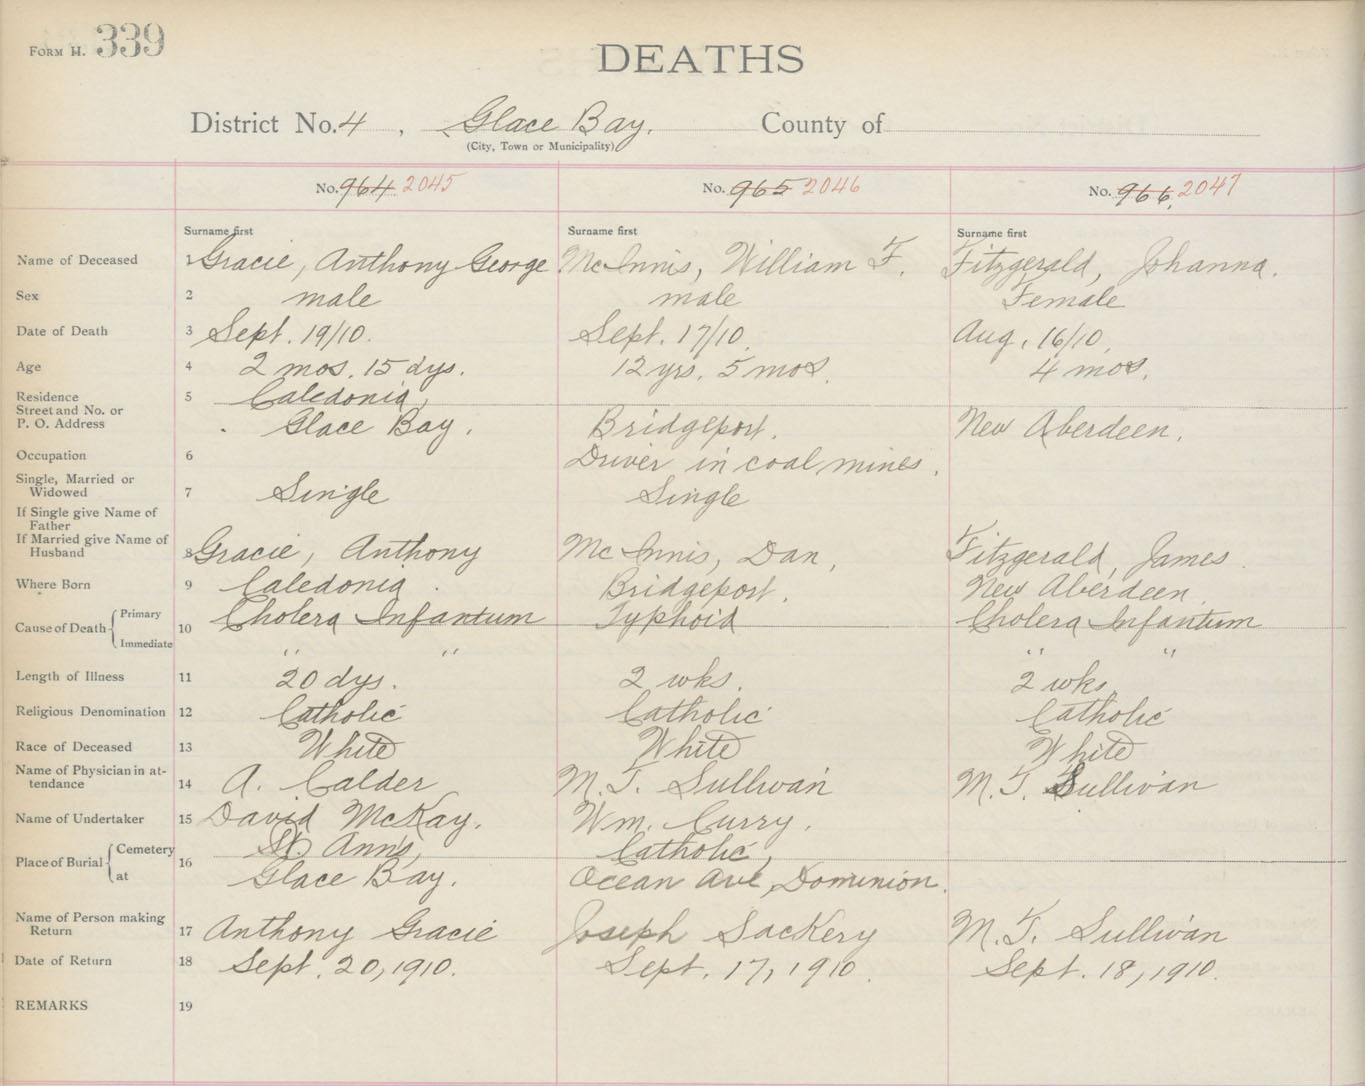 FORM H. 339
DEATHS
District No. 4, Glace Bay. County of
(City, Town or Municipality)
No. 964 2045 No. 965 2046 No. 966. 2047
Surname first Surname first Surname first
Name of Deceased 1 Gracie, Anthony George McInnis, William F. Fitzgerald, Johanna.
Sex 2 male male Female
Date of Death 3 Sept. 19/10. Sept. 17/10. Aug. 16/10.
Age 4 2 mos. 15 dys. 12 yrs. 5 mos. 4 mos.
Residence 5 Caledonia,
Street and No. or
P. O. Address Glace Bay. Bridgeport. New Aberdeen.
Occupation 6 Driver in coal mines.
Single, Married or
Widowed 7 Single Single
If Single give Name of
Father
If Married give Name of
Husband 8 Gracie, Anthony McInnis, Dan, Fitzgerald, James
Where Born 9 Caledonia. Bridgeport. New Aberdeen.
Cause of Death Primary 10 Cholera Infantum Typhoid Cholera Infantum
Immediate " " " "
Length of Illness 11 20 dys. 2 wks. 2 wks.
Religious Denomination 12 Catholic Catholic Catholic
Race of Deceased 13 White White White
Name of Physician in at-
tendance 14 A. Calder M. T. Sullivan M. T. Sullivan
Name of Undertaker 15 David McKay. Wm. Curry.
Place of Burial Cemetery 16 St. Ann's, Catholic,
at Glace Bay. Ocean Ave, Dominion.
Name of Person making
Return 17 Anthony Gracie Joseph Sackery M. T. Sullivan
Date of Return 18 Sept. 20, 1910. Sept. 17, 1910. Sept. 18, 1910.
REMARKS 19